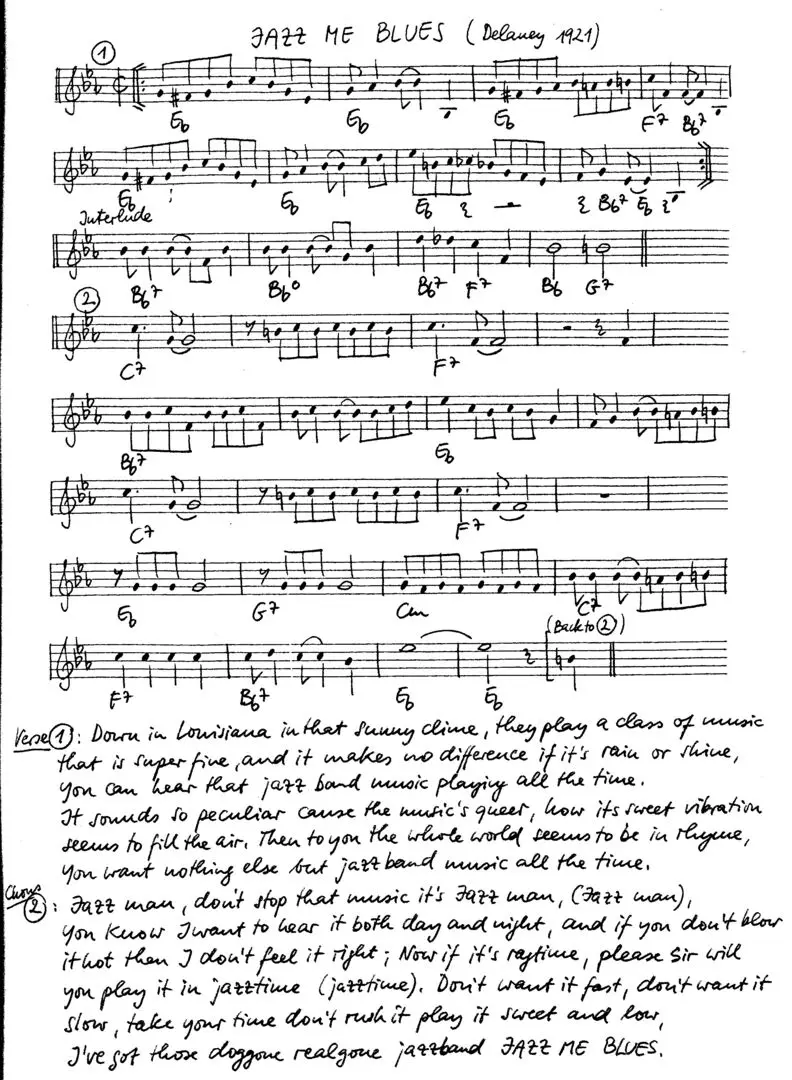 JAZZ ME BLUES (Delaney 1921)
①
Eb Eb Eb F7 Bb7
Eb Eb Eb Bb7 Eb
Interlude
Bb7 Bb° Bb7 F7 Bb G7
②
C7 F7
Bb7 Eb
C7 F7
Eb G7 Cm C7
(Back to ②)
F7 Bb7 Eb Eb
Verse ①: Down in Louisiana in that sunny clime, they play a class of music
that is super fine, and it makes no difference if it's rain or shine,
you can hear that jazz band music playing all the time.
It sounds so peculiar cause the music's queer, how its sweet vibration
seems to fill the air. Then to you the whole world seems to be in rhyme,
you want nothing else but jazzband music all the time.
Chorus
②: Jazz man, don't stop that music it's Jazz man, (Jazz man),
you know I want to hear it both day and night, and if you don't blow
it hot then I don't feel it right; Now if it's ragtime, please Sir will
you play it in jazztime (jazztime). Don't want it fast, don't want it
slow, take your time don't rush it play it sweet and low,
I've got those doggone realgone jazzband JAZZ ME BLUES.